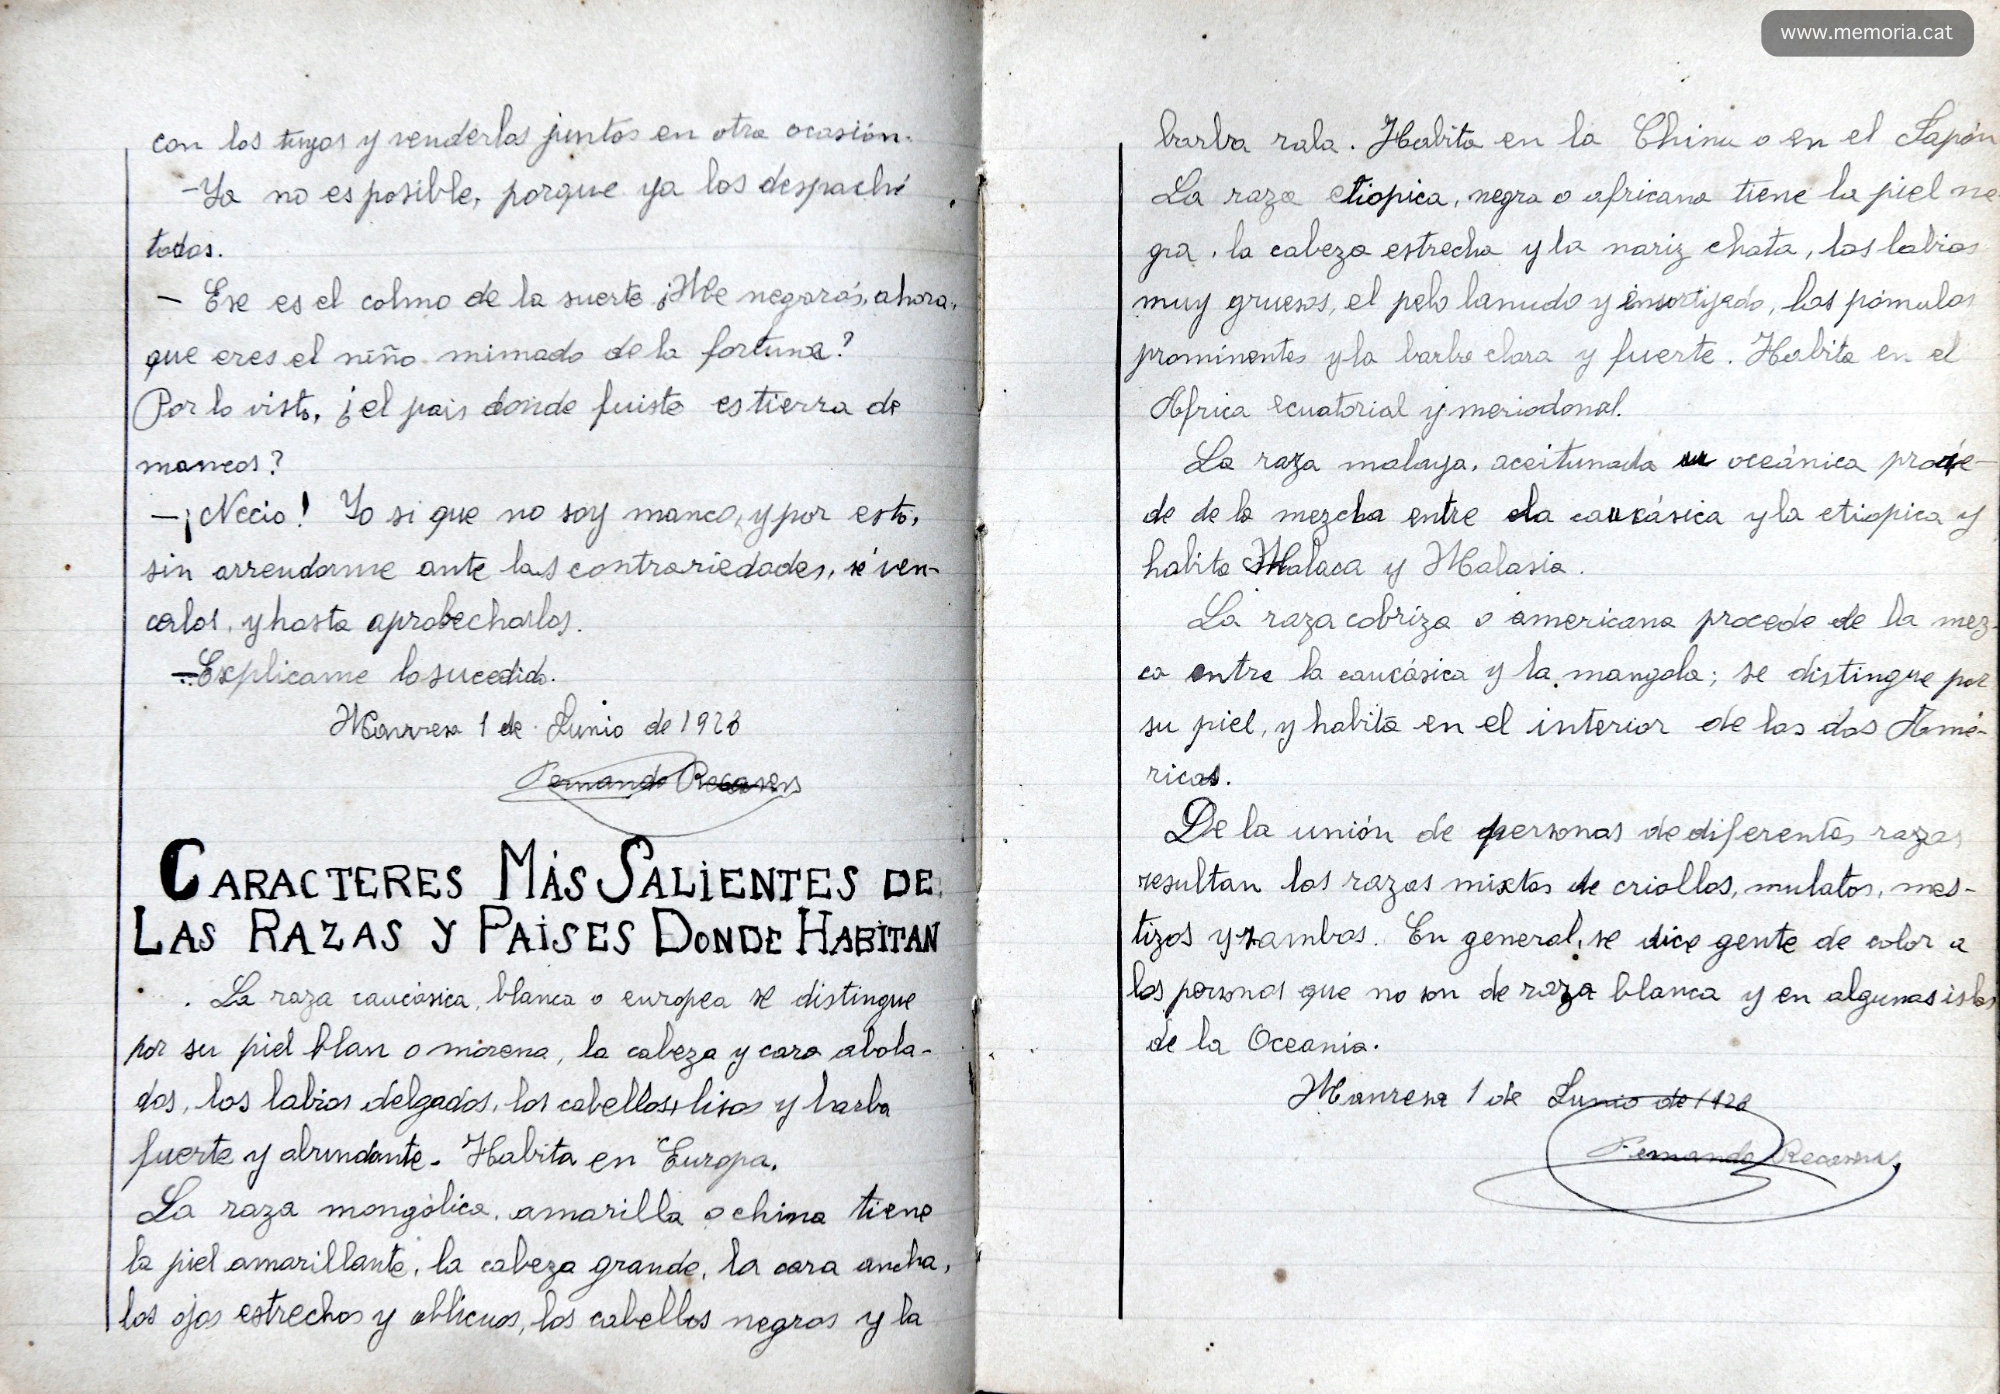 www.memoria.cat
con los tuyos y venderlos juntos en otra ocasión.
-Ya no es posible, porque ya los despaché
todos.
- Ese es el colmo de la suerte ¡Me negarás, ahora,
que eres el niño mimado de la fortuna?
Por lo visto, ¡el pais donde fuiste es tierra de
mancos?
-¡Necio! Yo si que no soy manco, y por esto,
sin arrendarme ante las contrariedades, sé ven-
cerlos, y hasta aprobecharlos.
-Explicame lo sucedido.
Manresa 1 de Junio de 1928
Fernando Recasens
CARACTERES MÁS SALIENTES DE
LAS RAZAS Y PAÍSES DONDE HABITAN
La raza caucásica, blanca o europea se distingue
por su piel blan o morena, la cabeza y cara abola-
dos, los labios delgados, los cabellos lisos y barba
fuerte y abundante. Habita en Europa.
La raza mongólica, amarilla o china tiene
la piel amarillante, la cabeza grande, la cara ancha,
los ojos estrechos y oblicuos, los cabellos negros y la
barba rala. Habita en la China o en el Japón
La raza etiopica, negra o africana tiene la piel ne-
gra, la cabeza estrecha y la nariz chata, los labios
muy gruesos, el pelo lanudo y ensortijado, los pómulos
prominentes y la barba clara y fuerte. Habita en el
Africa ecuatorial y meriodonal.
La raza malaya, aceitunada u oceánica proce-
de de la mezcla entre la caucásica y la etiopica y
habita Malaca y Malasia.
La raza cobriza o americana procede de la mez-
ca entre la caucásica y la mangola; se distingue por
su piel, y habita en el interior de las dos Amé-
ricas.
De la unión de personas de diferentes razas
resultan las razas mixtas de criollos, mulatos, mes-
tizos y zambos. En general, se dice gente de color a
los personas que no son de raza blanca y en algunas islas
de la Oceania.
Manresa 1 de Junio de 1928
Fernando Recasens